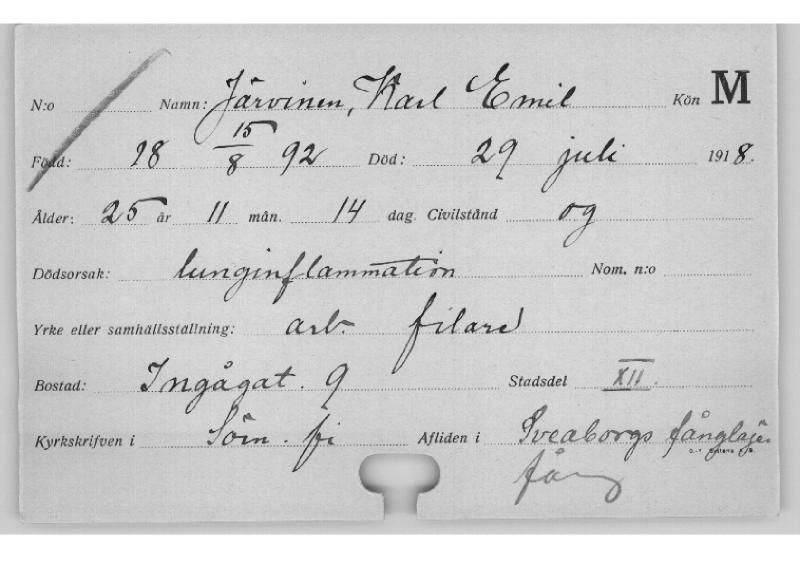 N:o Namn: Järvinen, Karl Emil Kön M
Född: 18 15/8 92 Död: 29 juli 1918.
Ålder: 25 år 11 mån. 14 dag. Civilstånd og
Dödsorsak: lunginflammation Nom. n:o
Yrke eller samhällsställning: arb. filare
Bostad: Ingågat. 9 Stadsdel XII.
Kyrkskrifven i Sörn. fi Afliden i Sveaborgs fångläger
fång